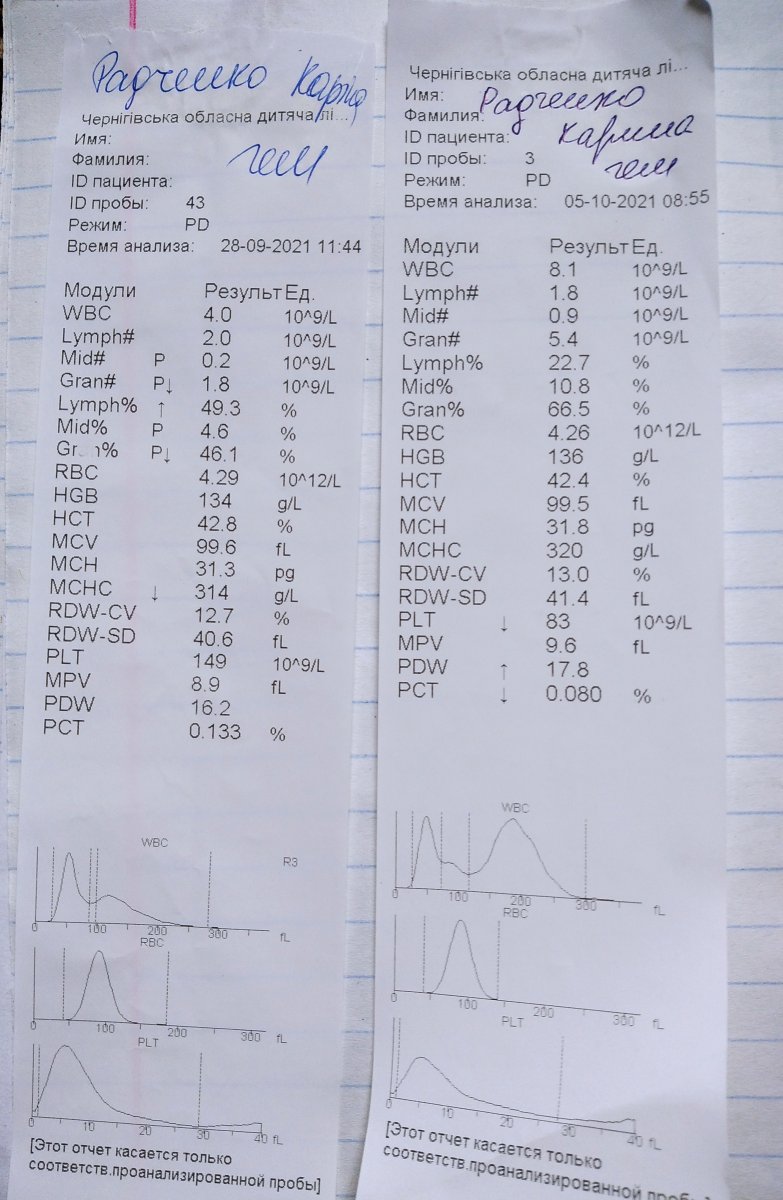 Радченко Карина
Чернігівська обласна дитяча лі...
Имя:
Фамилия:
гем
ID пациента:
ID пробы: 43
Режим: PD
Время анализа: 28-09-2021 11:44
Модули Результ Ед.
WBC 4.0 10^9/L
Lymph# 2.0 10^9/L
Mid# P 0.2 10^9/L
Gran# P↓ 1.8 10^9/L
Lymph% ↑ 49.3 %
Mid% P 4.6 %
Gran% P↓ 46.1 %
RBC 4.29 10^12/L
HGB 134 g/L
HCT 42.8 %
MCV 99.6 fL
MCH 31.3 pg
MCHC ↓ 314 g/L
RDW-CV 12.7 %
RDW-SD 40.6 fL
PLT 149 10^9/L
MPV 8.9 fL
PDW 16.2
PCT 0.133 %
WBC
R3
0 100 200 300 fL
RBC
0 100 200 300 fL
PLT
0 10 20 30 40 fL
[Этот отчет касается только
соответств.проанализированной пробы]
Чернігівська обласна дитяча лі...
Имя: Радченко
Фамилия:
ID пациента: Карина
ID пробы: 3 гем
Режим: PD
Время анализа: 05-10-2021 08:55
Модули Результ Ед.
WBC 8.1 10^9/L
Lymph# 1.8 10^9/L
Mid# 0.9 10^9/L
Gran# 5.4 10^9/L
Lymph% 22.7 %
Mid% 10.8 %
Gran% 66.5 %
RBC 4.26 10^12/L
HGB 136 g/L
HCT 42.4 %
MCV 99.5 fL
MCH 31.8 pg
MCHC 320 g/L
RDW-CV 13.0 %
RDW-SD 41.4 fL
PLT ↓ 83 10^9/L
MPV 9.6 fL
PDW ↑ 17.8
PCT ↓ 0.080 %
WBC
0 100 200 300 fL
RBC
0 100 200 300 fL
PLT
0 10 20 30 40 fL
[Этот отчет касается только
соответств.проанализированной пробы]